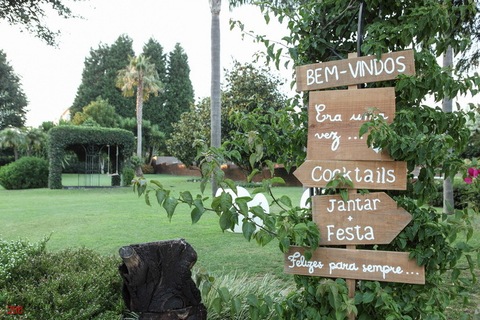 BEM-VINDOS
Era uma
vez ...
Cocktails
Jantar
+
Festa
Felizes para sempre...